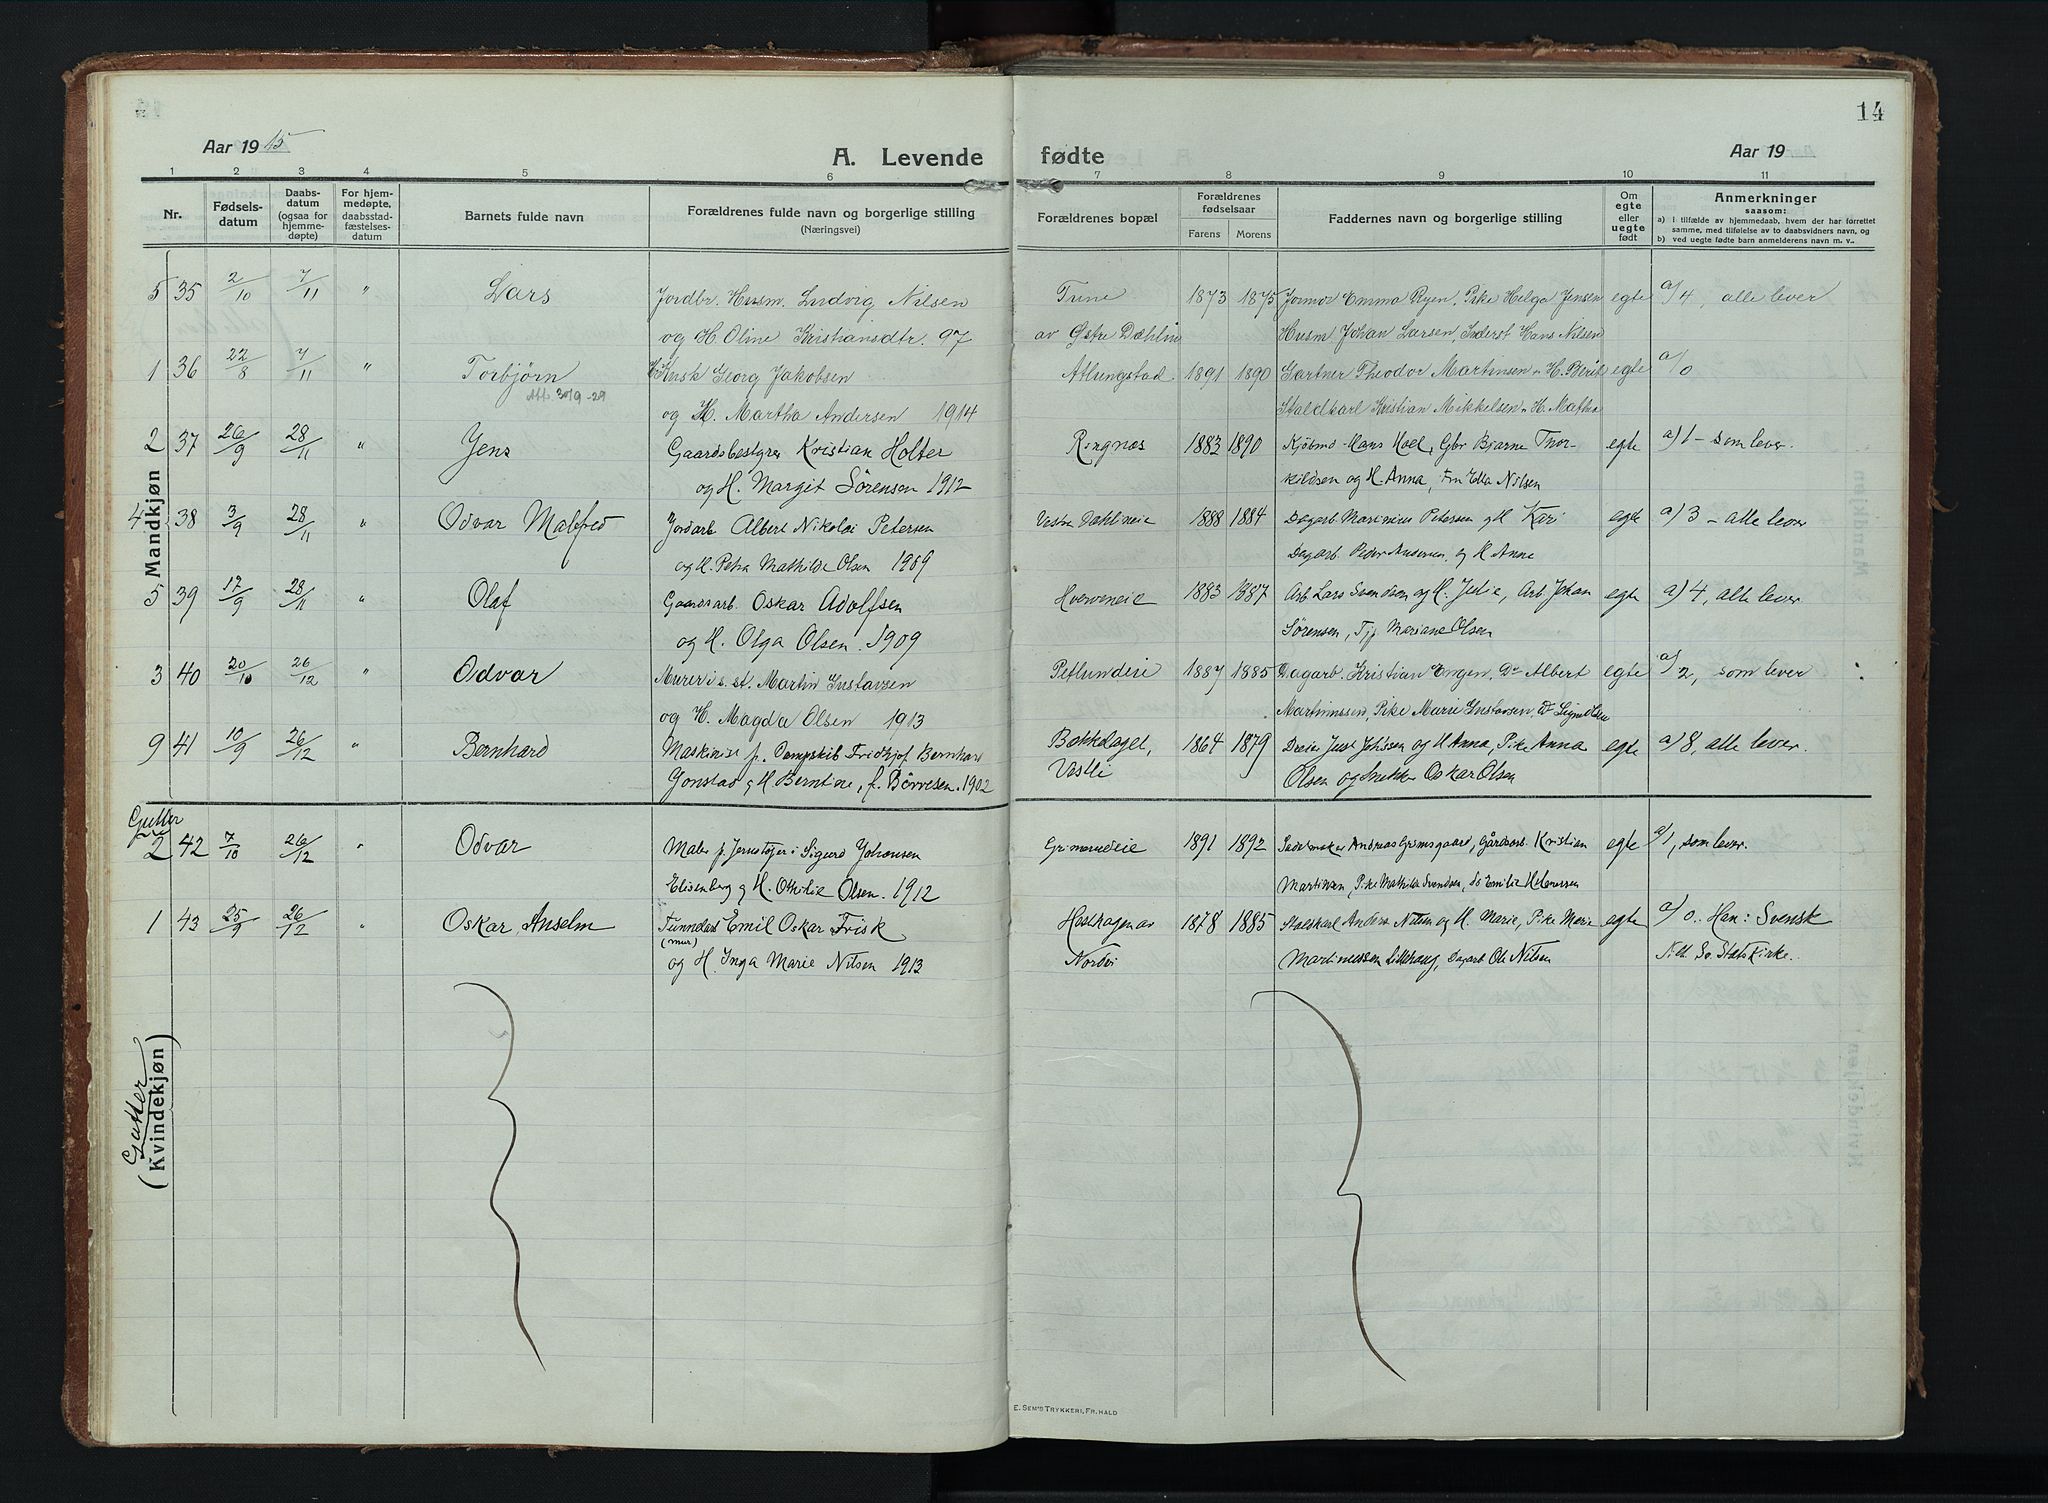 14
Aar 1915
A. Levende fødte
Aar 19
1 2 3 4 5 6 7 8 9 10 11
Nr.
Fødsels-
datum
Daabs-
datum
(ogsaa for
hjemme-
døpte)
For hjem-
medøpte,
daabsstad-
fæstelses-
datum
Barnets fulde navn
Forældrenes fulde navn og borgerlige stilling
(Næringsvei)
Forældrenes bopæl
Forældrenes
fødselsaar
Farens Morens
Faddernes navn og borgerlige stilling
Om
egte
eller
uegte
født
Anmerkninger
saasom:
a) i tilfælde av hjemmedaab, hvem der har forrettet
samme, med tilføielse av to daabsvidners navn, og
b) ved uegte fødte barn anmelderens navn m. v..
Mandkjøn
5 35 2/10 7/11 " Lars Jordbr. Husm. Ludvig Nilsen 1873 1875 Emma Ryen, Pike Helga Jensen egte a/4, alle lever
og H. Oline Kristiansdtr. 97 av Østre Dæhlin Husm. Johan Larsen, Inderst Hans Nilsen
1 36 22/8 7/11 " Torbjørn Kusk Georg Jakobsen Atlungstad 1891 1890 Gartner Theodor Martinsen egte a/0
og H. Martha Andersen 1914 Staldkarl Kristian Mikkelsen H.
2 37 26/9 28/11 " Jens Gaardsbestyrer Kristian Holter Ringnæs 1883 1890 Kjøbmd Hans Hoel, Gbr Bjarne Thor- egte a) 1 – som lever.
og H. Margit Sørensen 1912 kildsen og H. Anna, Frk Ella Nilsen
4 38 3/9 28/11 " Odvar Malfred Jordarb Albert Nikolai Petersen 1888 1884 Dagarb Marinius Petersen og H Kari egte a) 3 – alle lever
og H. Petra Mathilde Olsen 1909 Dagarb. Peder Andersen og H Anne
5 39 17/9 28/11 " Olaf Gaardsarb. Oskar Adolfsen 1883 1887 Arb Lars Svendsen og H. Arb. Johan egte a) 4, alle lever
og H. Olga Olsen. 1909 Sørensen, Tj. Mariane Olsen
3 40 20/10 26/12 " Odvar Murer Martin Gustavsen 1887 1885 Dagarb. Kristian Engen, Do Albert egte a/2, som lever
og H. Magda Olsen 1913 Martinussen, Pike Marie Gustavsen, Do
9 41 10/9 26/12 " Bernhard Maskinist p. Dampskib Fridtjof Bernhard 1864 1879 og H Anna, Pike Anna egte a) 8, alle lever.
Jonstad og H Berntine, f. Børresen. 1902 Olsen og Oskar Olsen
Gutter
2 42 7/10 26/12 " Odvar Maler Sigurd Johansen 1891 1892 Sadelmaker Andreas Grimsgaard, Gårdsarb. Kristian egte a/1, som lever.
og H. Othilie Olsen. 1912 Martinsen, Pike Mathilde Svendsen, Do Emilie
1 43 25/9 26/12 " Oskar Anselm Emil Oskar Frisk 1878 1885 Staldkarl Anders Nilsen og H. Marie, Pike Marie egte a/0. Han: Svensk
(mur)
og H. Inga Marie Nilsen 1913 Martinussen Dagarb Ole Nilsen Sv. Statskirke.
Gutter
(Kvindekjøn)
E. SEM'S TRYKKERI, FR.HALD